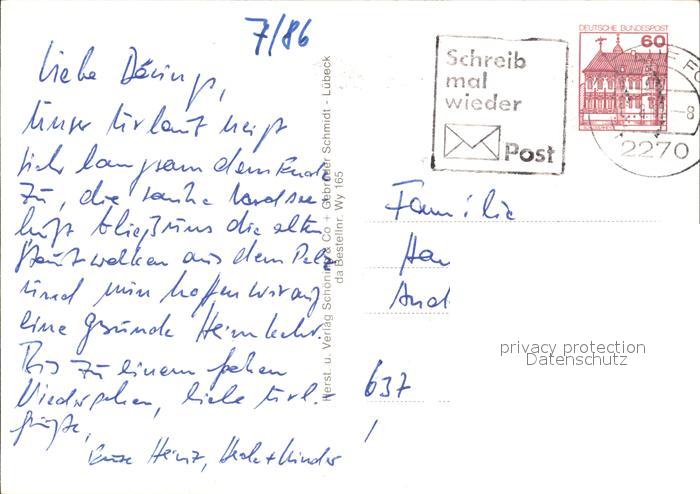 7/86
Liebe Dörings,
Unser Urlaub neigt
sich langsam dem Ende
zu, die Nordsee
luft bließ uns die alten
Staubwolken aus dem Pelz
und nun hoffen wir auf
eine gesunde Heimkehr.
Bis zu einem frohen
Wiedersehen, liebe Url.-
grüße,
Eure Heinz, + Kinder
Herst. u. Verlag Schöning & Co + Gebrüder Schmidt - Lübeck
da Bestellnr. Wy 165
Schreib
mal
wieder
Post
DEUTSCHE BUNDESPOST
60
-8
2270
Familie
Han
And
637
privacy protection
Datenschutz